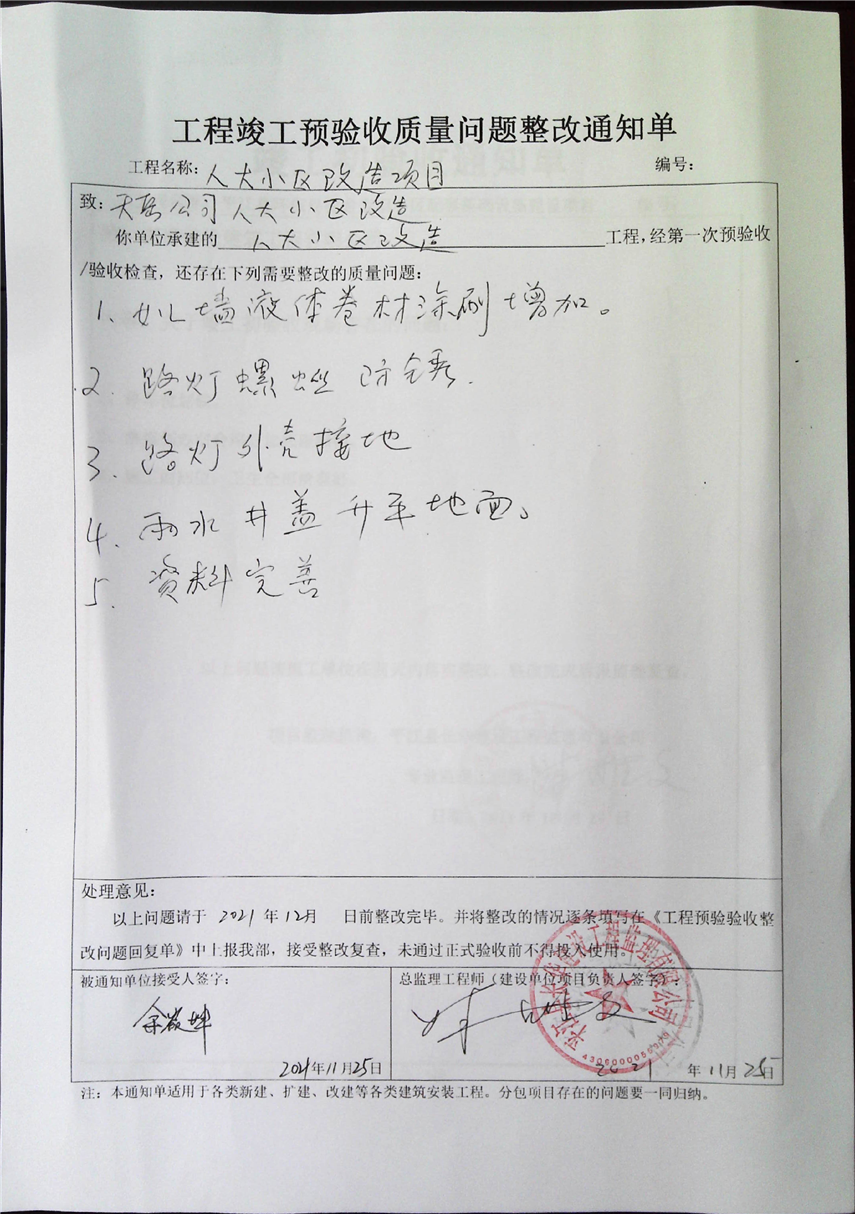 工程竣工预验收质量问题整改通知单
工程名称：人大小区改造项目 编号：
致：天岳公司人大小区改造
你单位承建的 人大小区改造 工程，经第一次预验收
/验收检查，还存在下列需要整改的质量问题：
1、女儿墙液体卷材涂刷增加。
2、路灯螺丝防锈.
3、路灯外壳接地
4、雨水井盖升平地面。
5、资料完善
处理意见：
以上问题请于 2021 年 12月 日前整改完毕。并将整改的情况逐条填写在《工程预验验收整
改问题回复单》中上报我部，接受整改复查，未通过正式验收前不得投入使用。
被通知单位接受人签字： 总监理工程师（建设单位项目负责人签字）：
2021年11月25日 2021 年11月25日
注：本通知单适用于各类新建、扩建、改建等各类建筑安装工程。分包项目存在的问题要一同归纳。